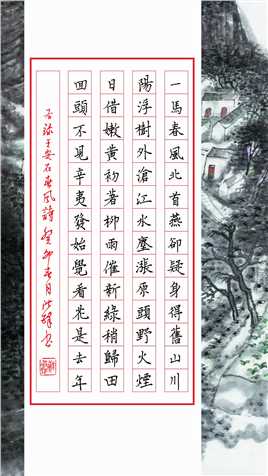 一馬春風北首燕卻疑身得舊山川
陽浮樹外滄江水塵漲原頭野火煙
日借嫩黃初著柳雨催新綠稍歸田
回頭不見辛夷發始覺看花是去年
安石春風詩癸卯春月